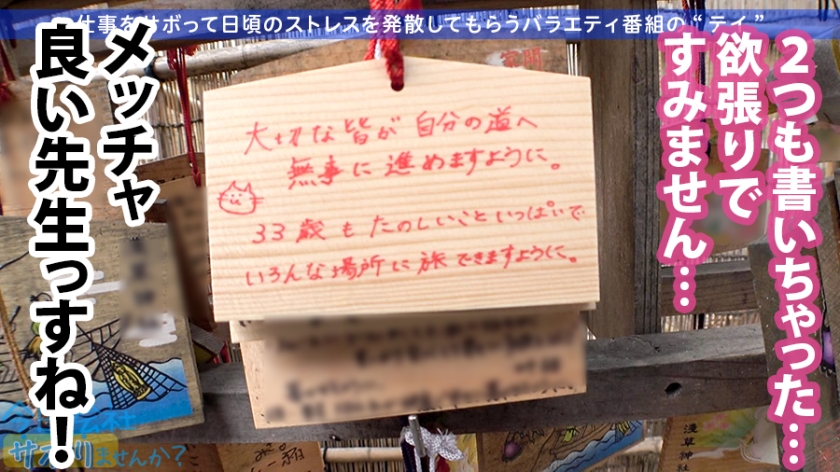 仕事をサボって日頃のストレスを発散してもらうバラエティ番組の“テイ”
2つも書いちゃった…
欲張りで
すみません…
メッチャ
良い先生っすね！
大切な皆が自分の道へ
無事に進めますように。
33歳もたのしいこといっぱいで
いろんな場所に旅できますように。
浅草神社
サボりませんか？